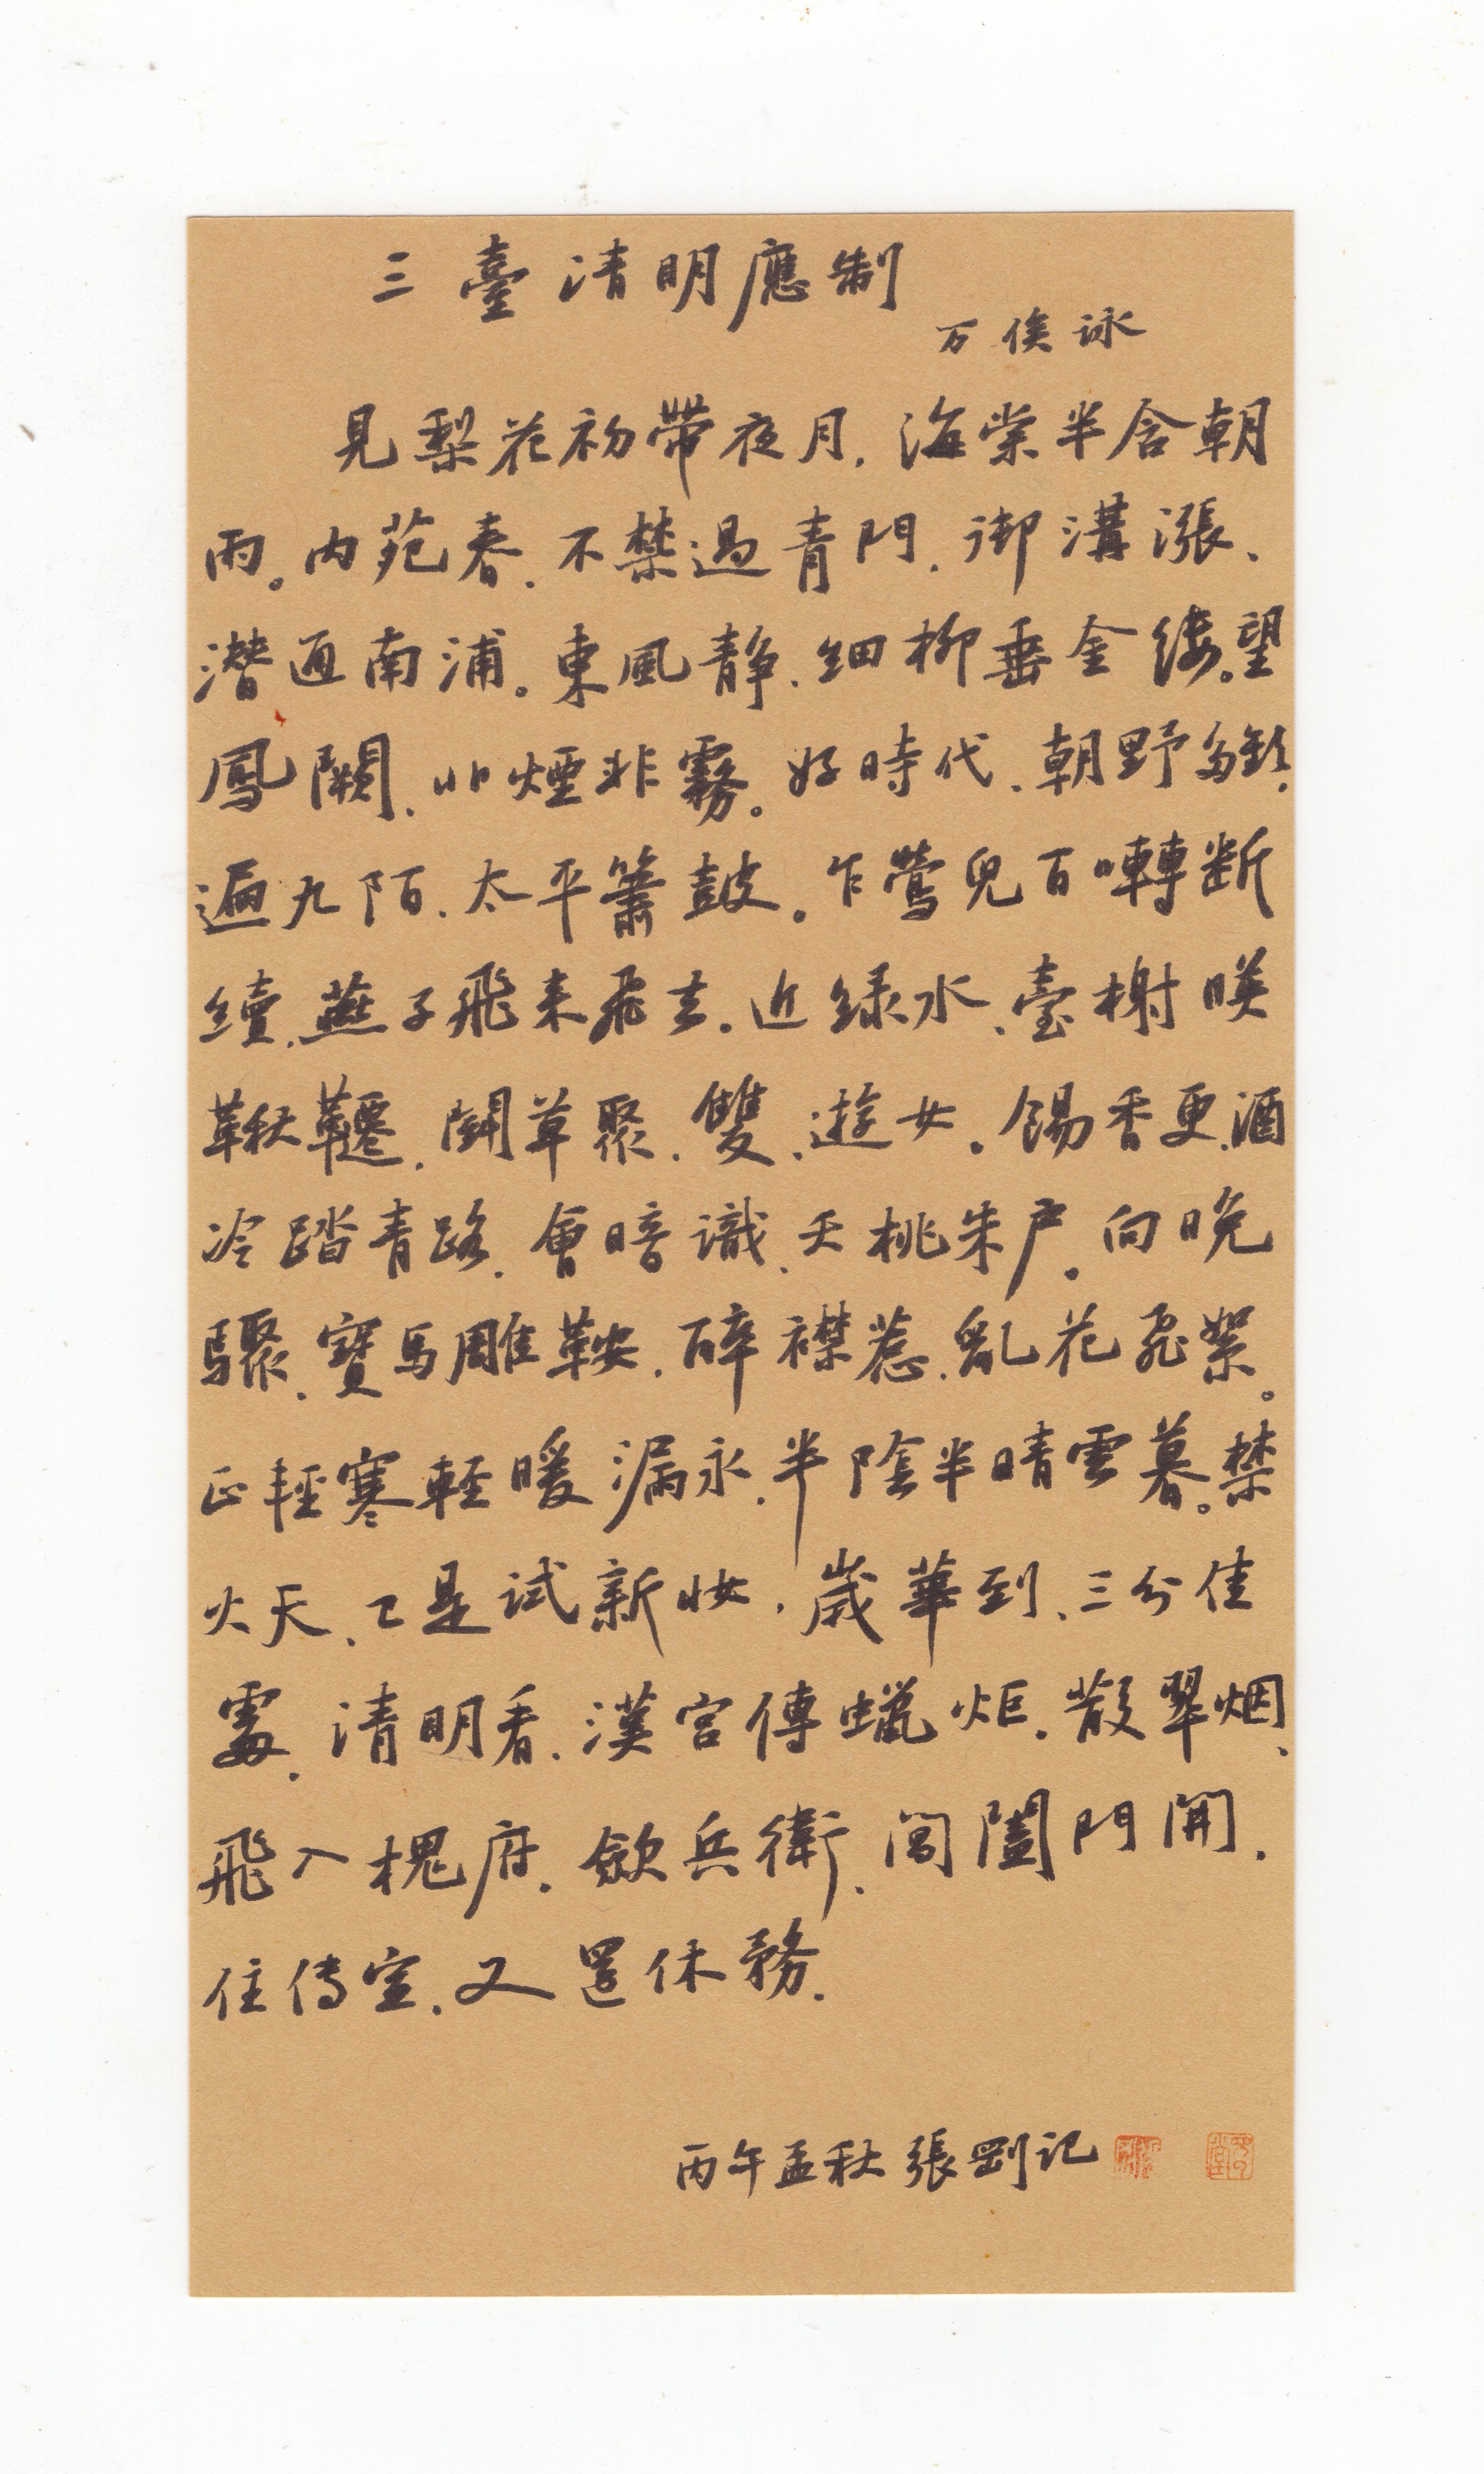 三臺清明應制
万俟詠
見梨花初帶夜月.海棠半含朝
雨。内苑春.不禁過青門.御溝漲、
潛通南浦。東風静.細柳垂金縷。望
鳳闕.非煙非霧。好時代、朝野多歡.
遍九陌.太平簫鼓。乍鶯兒百囀斷
續.燕子飛来飛去.近绿水、臺榭暎
鞦韆.鬪草聚.雙、遊女.餳香更.酒
冷踏青路.會暗識、夭桃朱户。向晚
驟.寶馬雕鞍.醉襟惹.亂花飛絮。
正輕寒輕暖漏永.半陰半晴雲暮。禁
火天、已是試新妝.歲華到、三分佳
處.清明看.漢宫傳蠟炬.散翠烟、
飛入槐府.斂兵衛、閶闔門開.
住傳宣.又還休務.
丙午孟秋張剛記